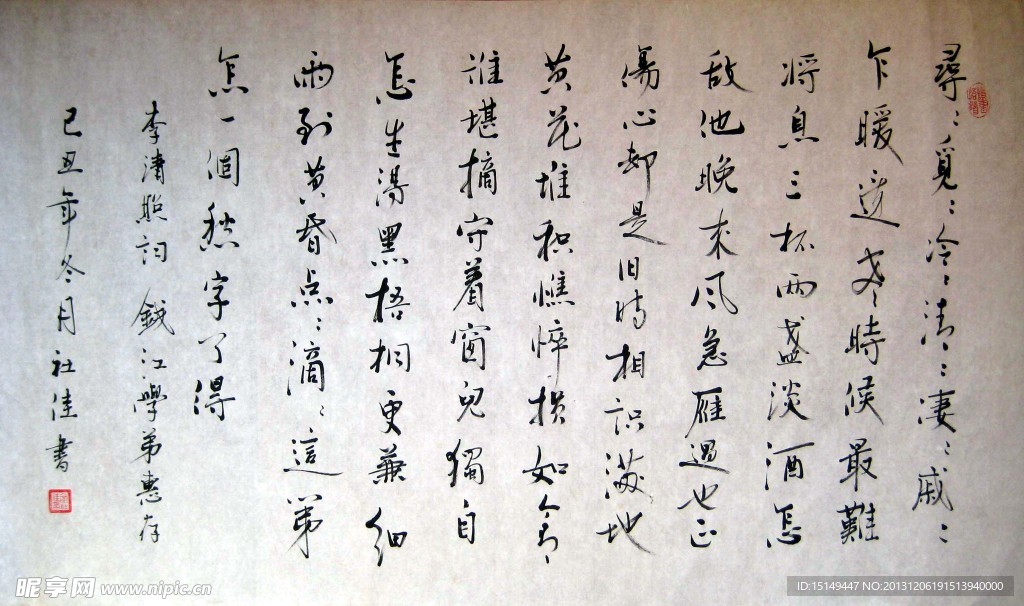 尋：覓：冷：清：凄：戚：
乍暖還寒時候最難
将息三杯两盏淡酒怎
敌他晚来风急雁過也正
傷心却是旧時相识满地
黄花堆积憔悴損如今
誰堪摘守着窗兒獨自
怎生得黑梧桐更兼细
雨到黄昏点：滴：這第
怎一個愁字了得
李清照詞 鋭江學弟惠存
己丑年冬月社佳書
昵享网 www.nipic.cn
ID:15149447 NO:20131206191513940000